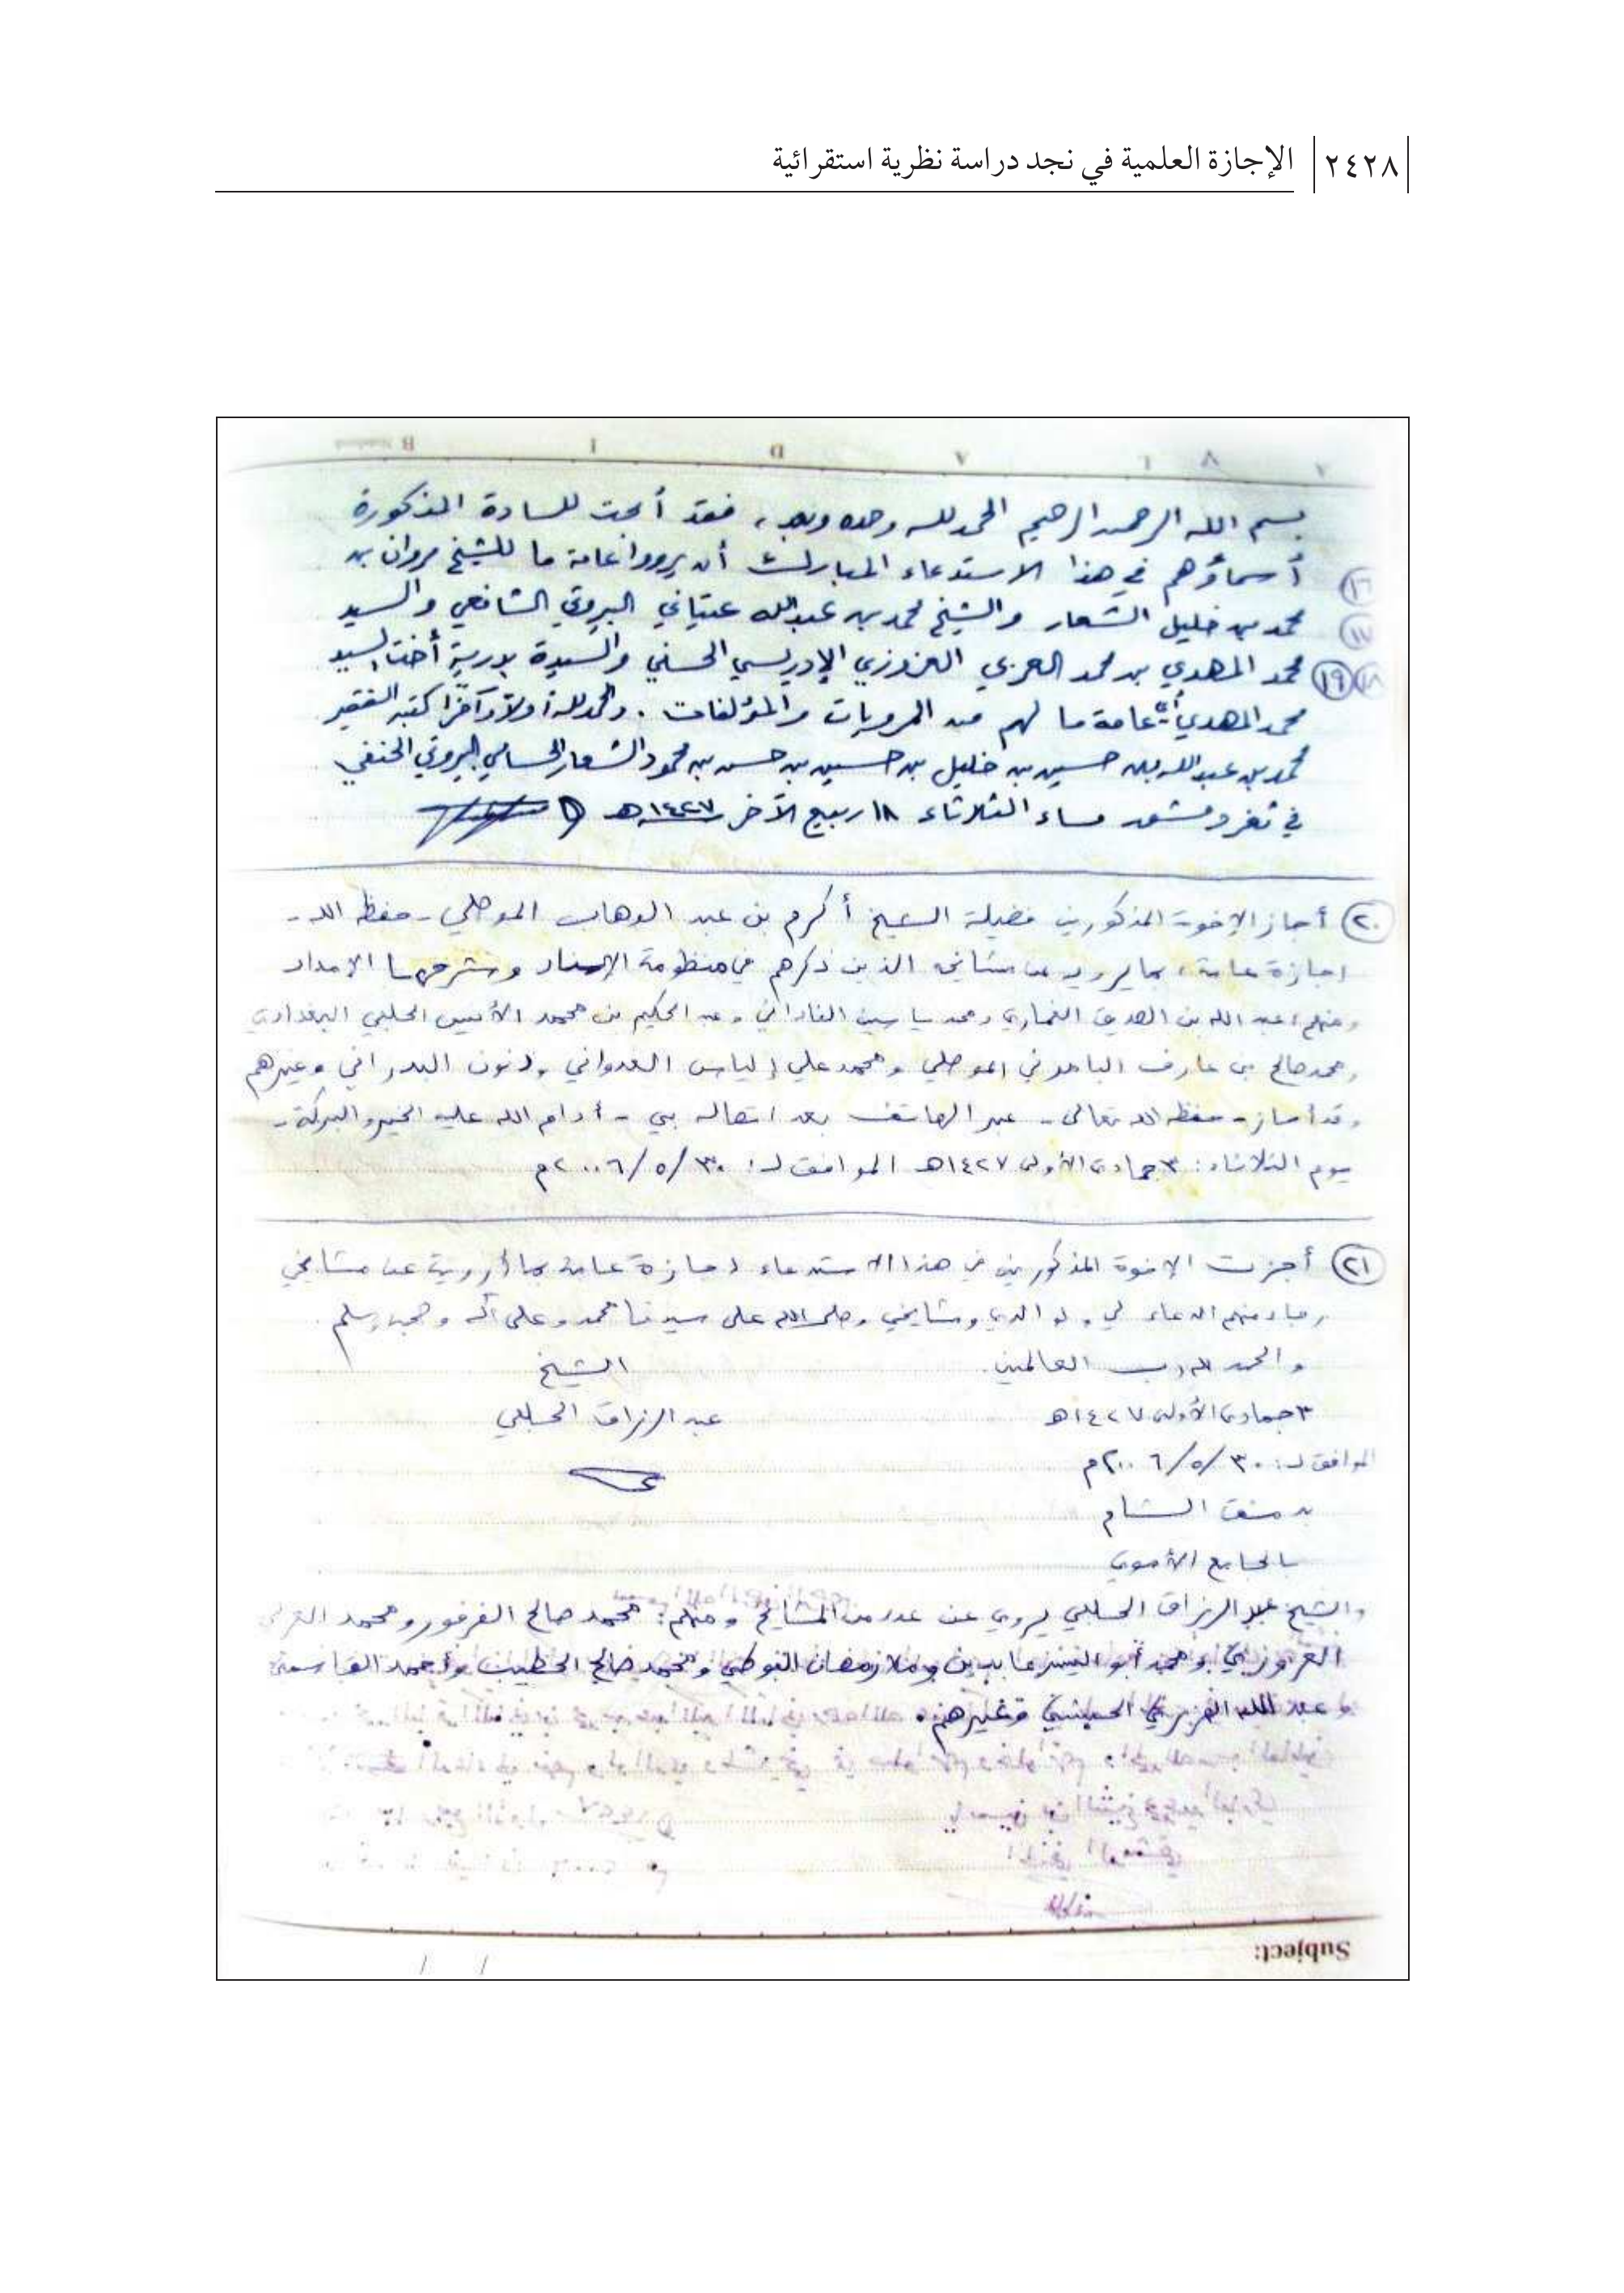 ٢٤٢٨ الإجازة العلمية في نجد دراسة نظرية استقرائية
بسم الله الرحمن الرحيم الحمد لله وحده وبعد، فقد أبحت للسادة المذكورة
⑯ أسماؤهم في هذا الاستدعاء المبارك أن يرووا عامة ما للشيخ مروان بن
⑰ محمد بن خليل الشعار والشيخ محمد بن عبدالله عيتاني البيروتي الشافعي والسيد
⑱ ⑲ محمد المهدي بن محمد العربي العزوزي الإدريسي الحسني والسيدة بدرية أخت السيد
محمد المهدي عامة ما لهم من المرويات والمؤلفات. والحمد لله أولاً وآخراً كتبه الفقير
محمد بن عبدالله بن حسين بن خليل بن حسين بن حسن بن محمود الشعار الحسامي البيروتي الحنفي
في ثغر دمشق مساء الثلاثاء ١٨ ربيع الآخر ١٤٢٧هـ
⑳ أجاز الإخوة المذكورين فضيلة الشيخ أكرم بن عبد الوهاب الموصلي - حفظه الله -
إجازة عامة، بما يرويه عن مشايخه الذين ذكرهم في منظومة الإسناد وشرحها الإمداد
ومنهم: عبد الله بن الصديق الغماري ومحمد ياسين الفاداني وعبد الحكيم بن محمد الأنيس الحلبي البغدادي
ومحمد صالح بن عارف الموصلي ومحمد علي إلياس العدواني وذنون البدراني وغيرهم
وقد أجاز - حفظه الله تعالى - عبر الهاتف بعد اتصاله بي - أدام الله عليه الخير والبركة -
يوم الثلاثاء: ٣ جمادى الأولى ١٤٢٧هـ الموافق لـ: ٣٠/٥/٢٠٠٦م
㉑ أجزت الإخوة المذكورين في هذا الاستدعاء إجازة عامة بما أرويه عن مشايخي
رجاء منهم الدعاء لي ولوالدي ومشايخي وصلى الله على سيدنا محمد وعلى آله وصحبه وسلم.
والحمد لله رب العالمين. الشيخ
٣ جمادى الأولى ١٤٢٧هـ عبد الرزاق الحلبي
الموافق لـ: ٣٠/٥/٢٠٠٦م
بدمشق الشام
بالجامع الأموي
والشيخ عبد الرزاق الحلبي يروي عن عدد من المشايخ ومنهم: محمد صالح الفرفور ومحمد العربي
العزوزي ومحمد أبو اليسر عابدين وملا رمضان البوطي ومحمد صالح الخطيب وأحمد القاسمي
وعبد الله الحسيني وغيرهم.
Subject: